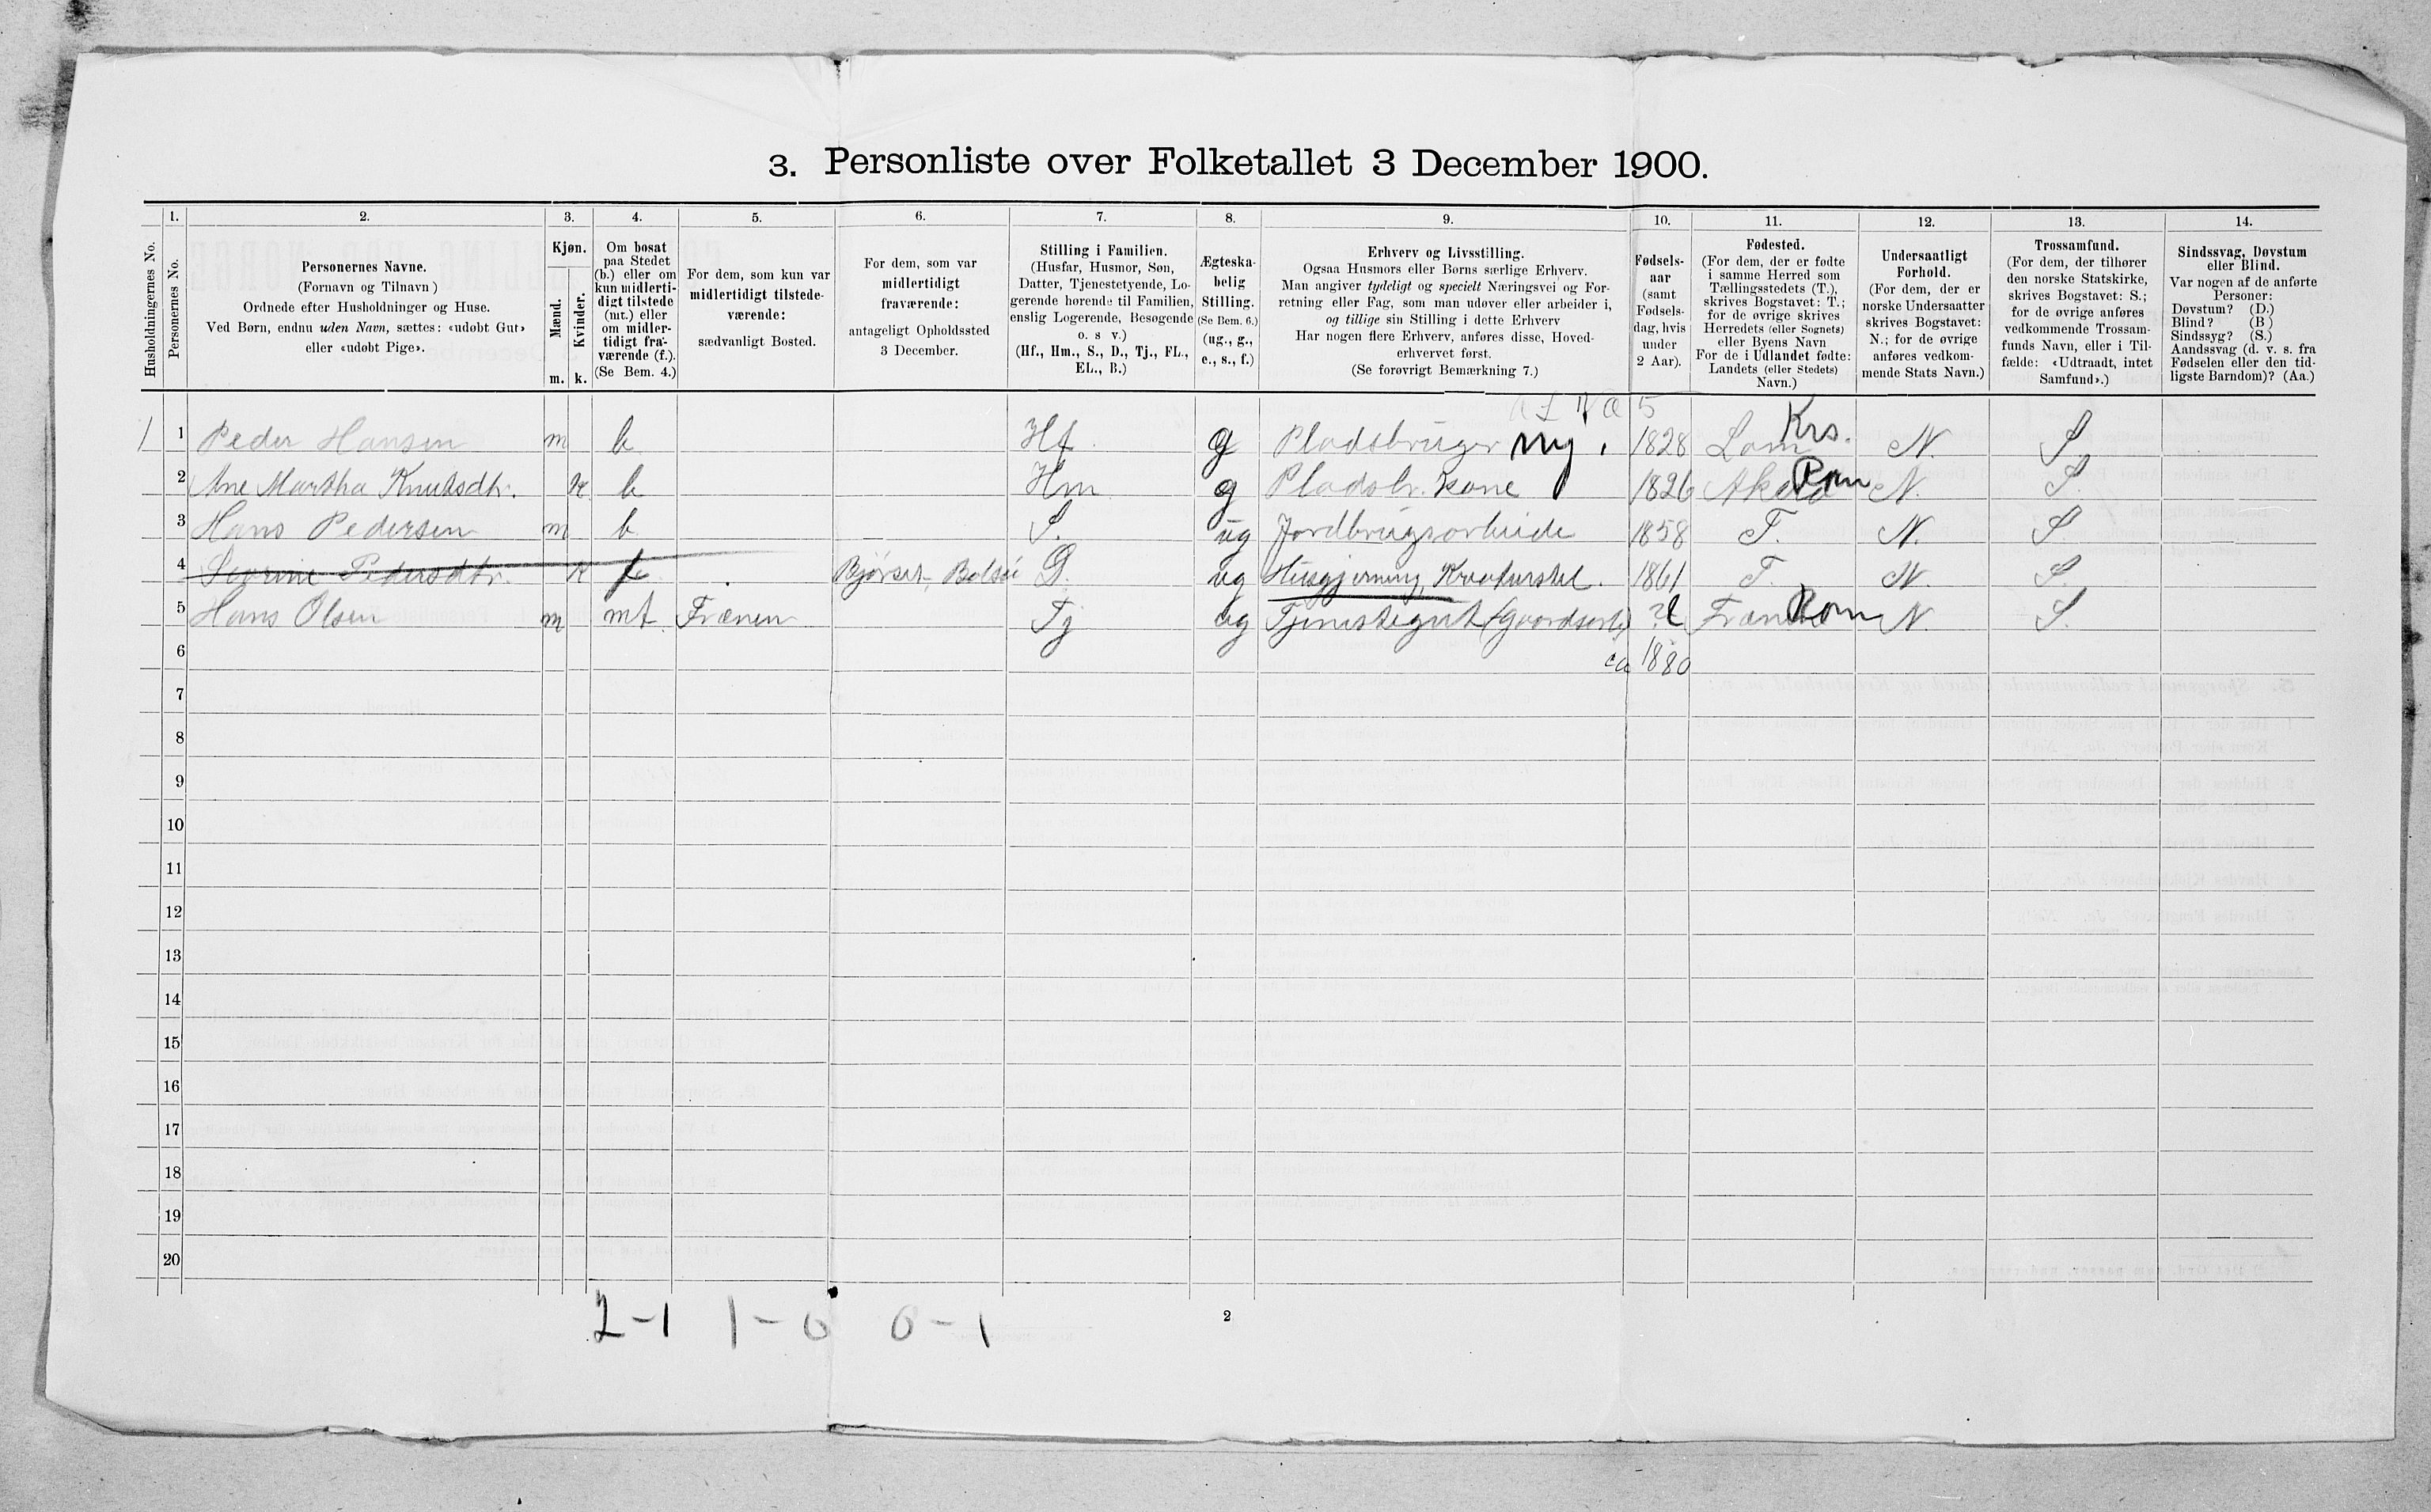 3. Personliste over Folketallet 3 December 1900.
Husholdningernes No.
1.
Personernes No.
2.
Personernes Navne.
(Fornavn og Tilnavn)
Ordnede efter Husholdninger og Huse.
Ved Børn, endnu uden Navn, sættes: «udøbt Gut»
eller «udøbt Pige».
3.
Kjøn.
Mænd.
Kvinder.
m. k.
4.
Om bosat
paa Stedet
(b.) eller om
kun midlerti-
digt tilstede
(mt.) eller
om midler-
tidigt fra-
værende (f.).
(Se Bem. 4.)
5.
For dem, som kun var
midlertidigt tilstede-
værende:
sædvanligt Bosted.
6.
For dem, som var
midlertidigt
fraværende:
antageligt Opholdssted
3 December.
7.
Stilling i Familien.
(Husfar, Husmor, Søn,
Datter, Tjenestetyende, Lo-
gerende hørende til Familien,
enslig Logerende, Besøgende
o. s v.)
(Hf., Hm., S., D., Tj., FL.,
EL., B.)
8.
Ægteska-
belig
Stilling.
(Se Bem. 6.)
(ug., g.,
e., s., f.)
9.
Erhverv og Livsstilling.
Ogsaa Husmors eller Børns særlige Erhverv.
Man angiver tydeligt og specielt Næringsvei og For-
retning eller Fag, som man udøver eller arbeider i,
og tillige sin Stilling i dette Erhverv
Har nogen flere Erhverv, anføres disse, Hoved-
erhvervet først.
(Se forøvrigt Bemærkning 7.)
10.
Fødsels-
aar
(samt
Fødsels-
dag, hvis
under
2 Aar).
11.
Fødested.
(For dem, der er fødte
i samme Herred som
Tællingsstedets (T.),
skrives Bogstavet: T.;
for de øvrige skrives
Herredets (eller Sognets)
eller Byens Navn
For de i Udlandet fødte:
Landets (eller Stedets)
Navn.)
12.
Undersaatligt
Forhold.
(For dem, der er
norske Undersaatter
skrives Bogstavet:
N.; for de øvrige
anføres vedkom-
mende Stats Navn.)
13.
Trossamfund.
(For dem, der tilhører
den norske Statskirke,
skrives Bogstavet: S.;
for de øvrige anføres
vedkommende Trossam-
funds Navn, eller i Til-
fælde: «Udtraadt, intet
Samfund».)
14.
Sindssvag, Døvstum
eller Blind.
Var nogen af de anførte
Personer:
Døvstum? (D.)
Blind? (B)
Sindssyg? (S.)
Aandssvag (d. v. s. fra
Fødselen eller den tid-
ligste Barndom)? (Aa.)
5
1 1 Peder Hansen m b Hf. g Pladsbruger my. 1828 Lom Krs. N. S
2 Ane Martha Knutsdtr. k b Hm g Pladsbr. kone 1826 Rom N. S.
3 Hans Pedersen m b S. ug Jordbrugsarbeide 1858 T. N. S
4 Pedersdtr. k f Bjørset, Bolsø D. ug Husgjerning, Kreaturstel. 1861 T. N. S
5 Hans Olsen m mt Frænen Tj ug Tjenestegut (Gaardsarb) ? Rom N. S.
6 ca 1880
7
8
9
10
11
12
13
14
15
16
17
18
19
20
2-1 1-0 0-1
2